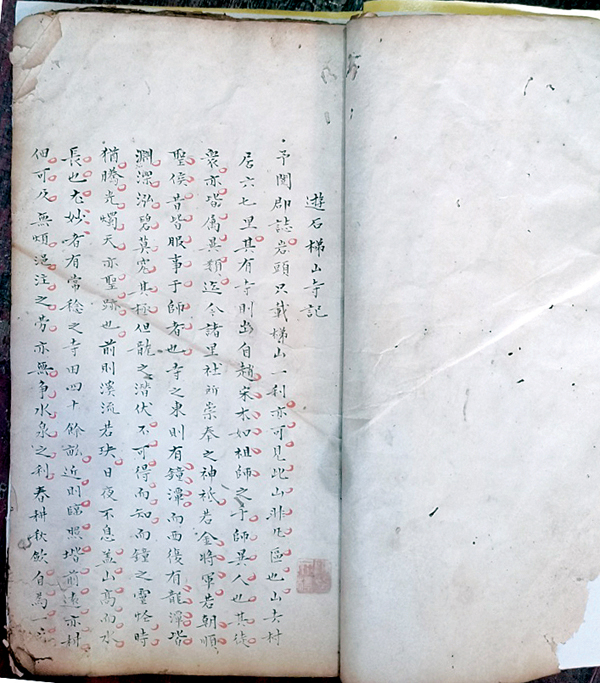 遊石梯山寺記
予閱郡誌岩頭只載梯山一刹亦可見此山非凡區也山去村
居六七里其有寺則出自趙宋末如祖師之手師異人也其徒
衆亦皆属異類迄今諸里社所崇奉之神祇若金將軍若朝順
聖侯昔皆服事于師者也寺之東則有鐘潭而西復有龍潭皆
淵深泓碧莫究其極但龍之潜伏不可得而知而鐘之靈怪時
猶騰光燭天亦聖跡也前則溪流若玦日夜不息盖山高而水
長也尤妙者有常稔之寺田四十餘畝近則臨照堦前遠亦
佃可及無煩浥注之勞亦無争水泉之利春耕秋飲自為一